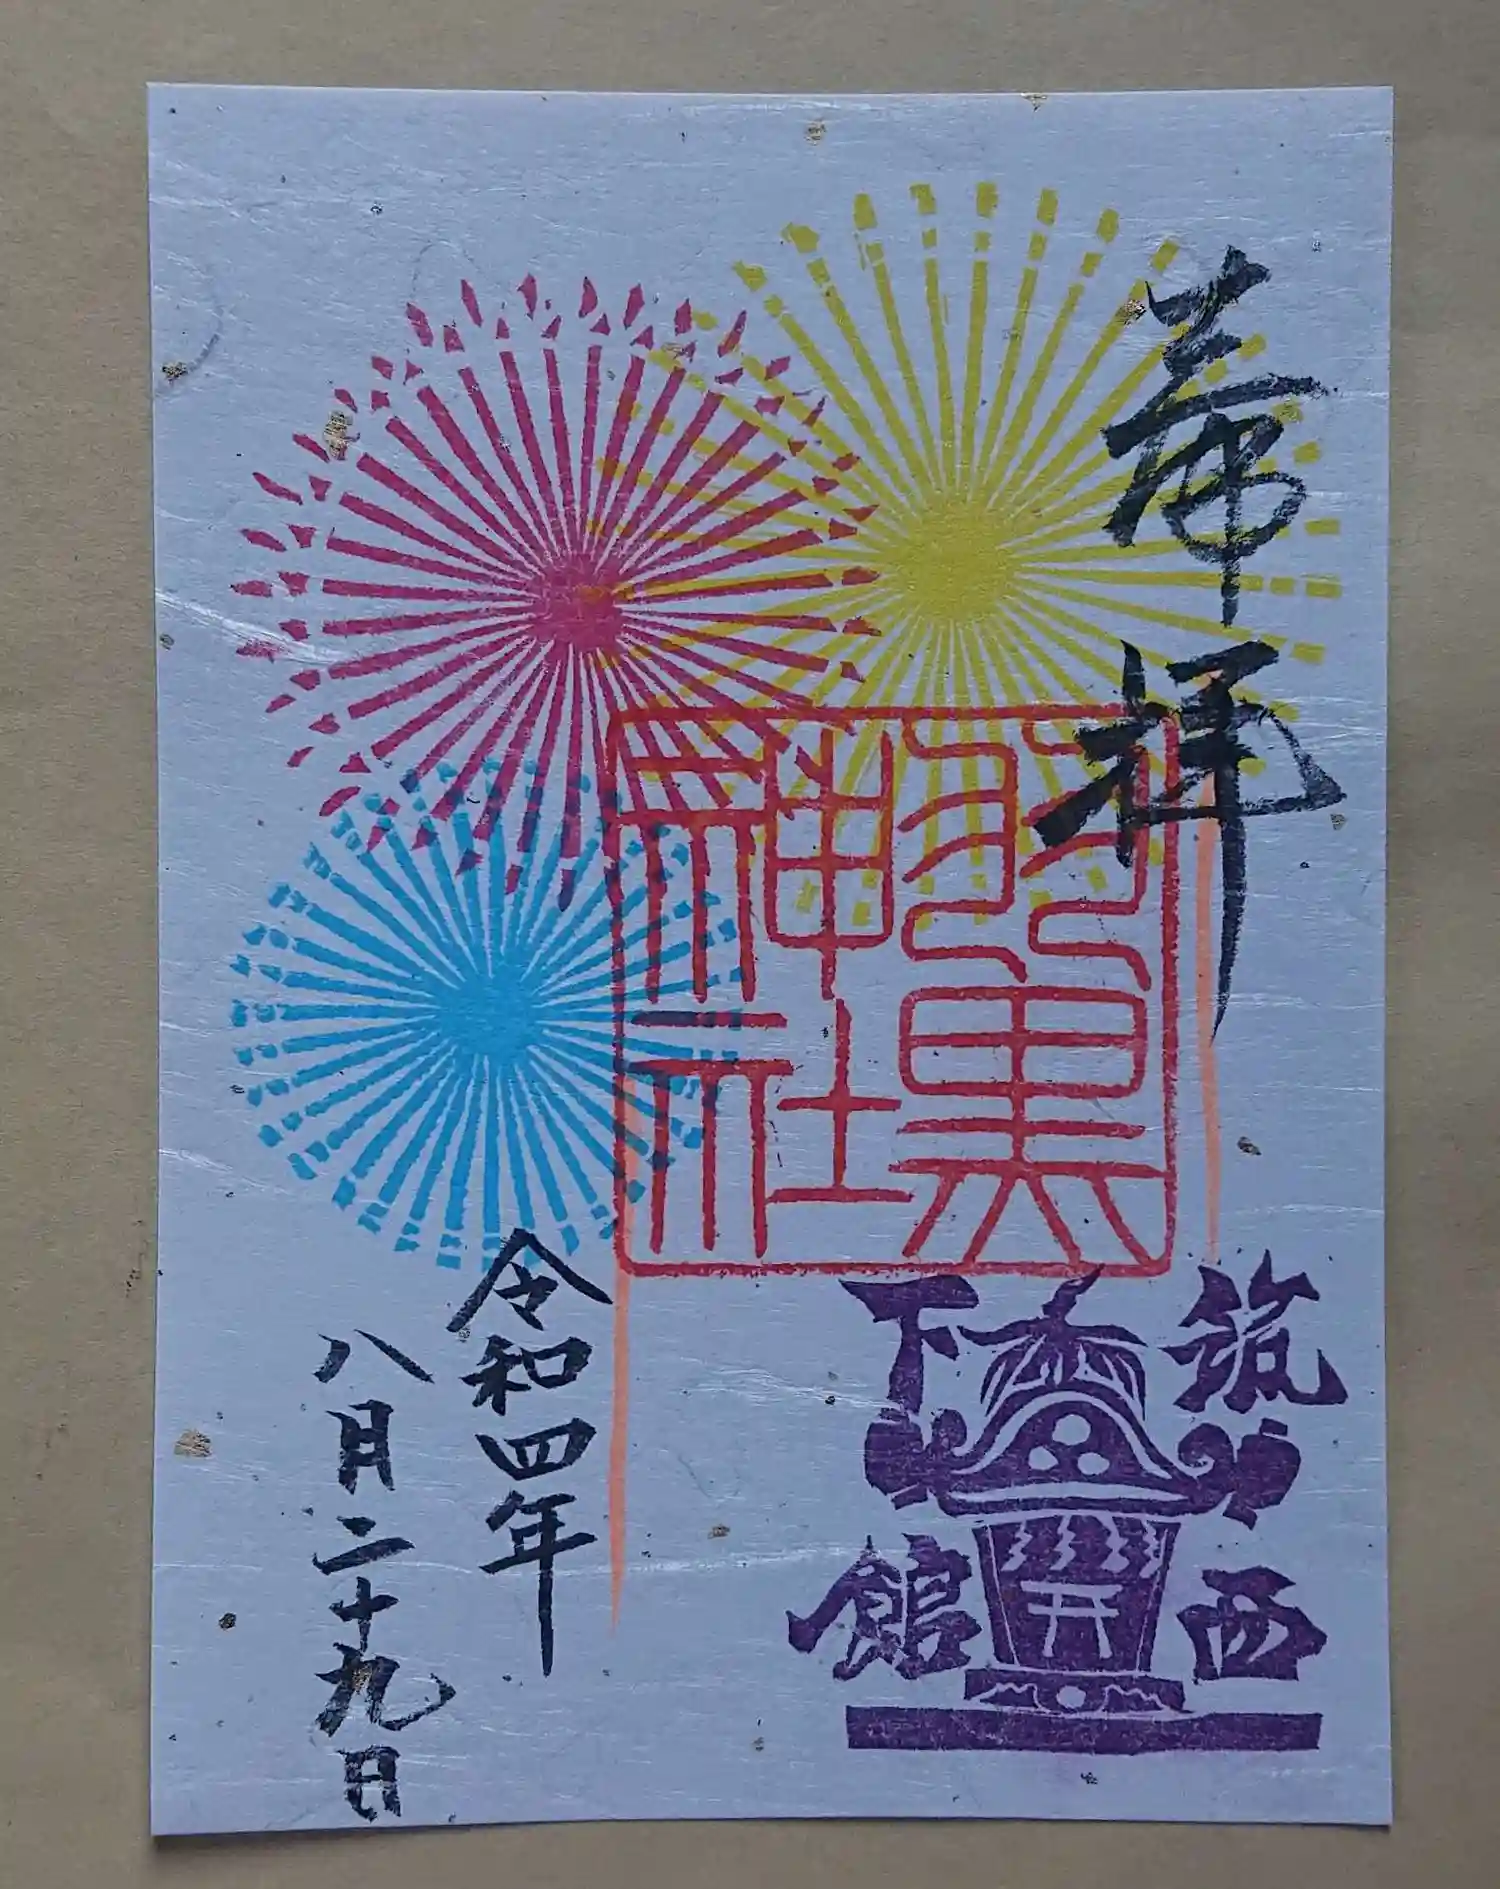 奉拝
羽黒神社
筑西
下館
令和四年
八月二十九日